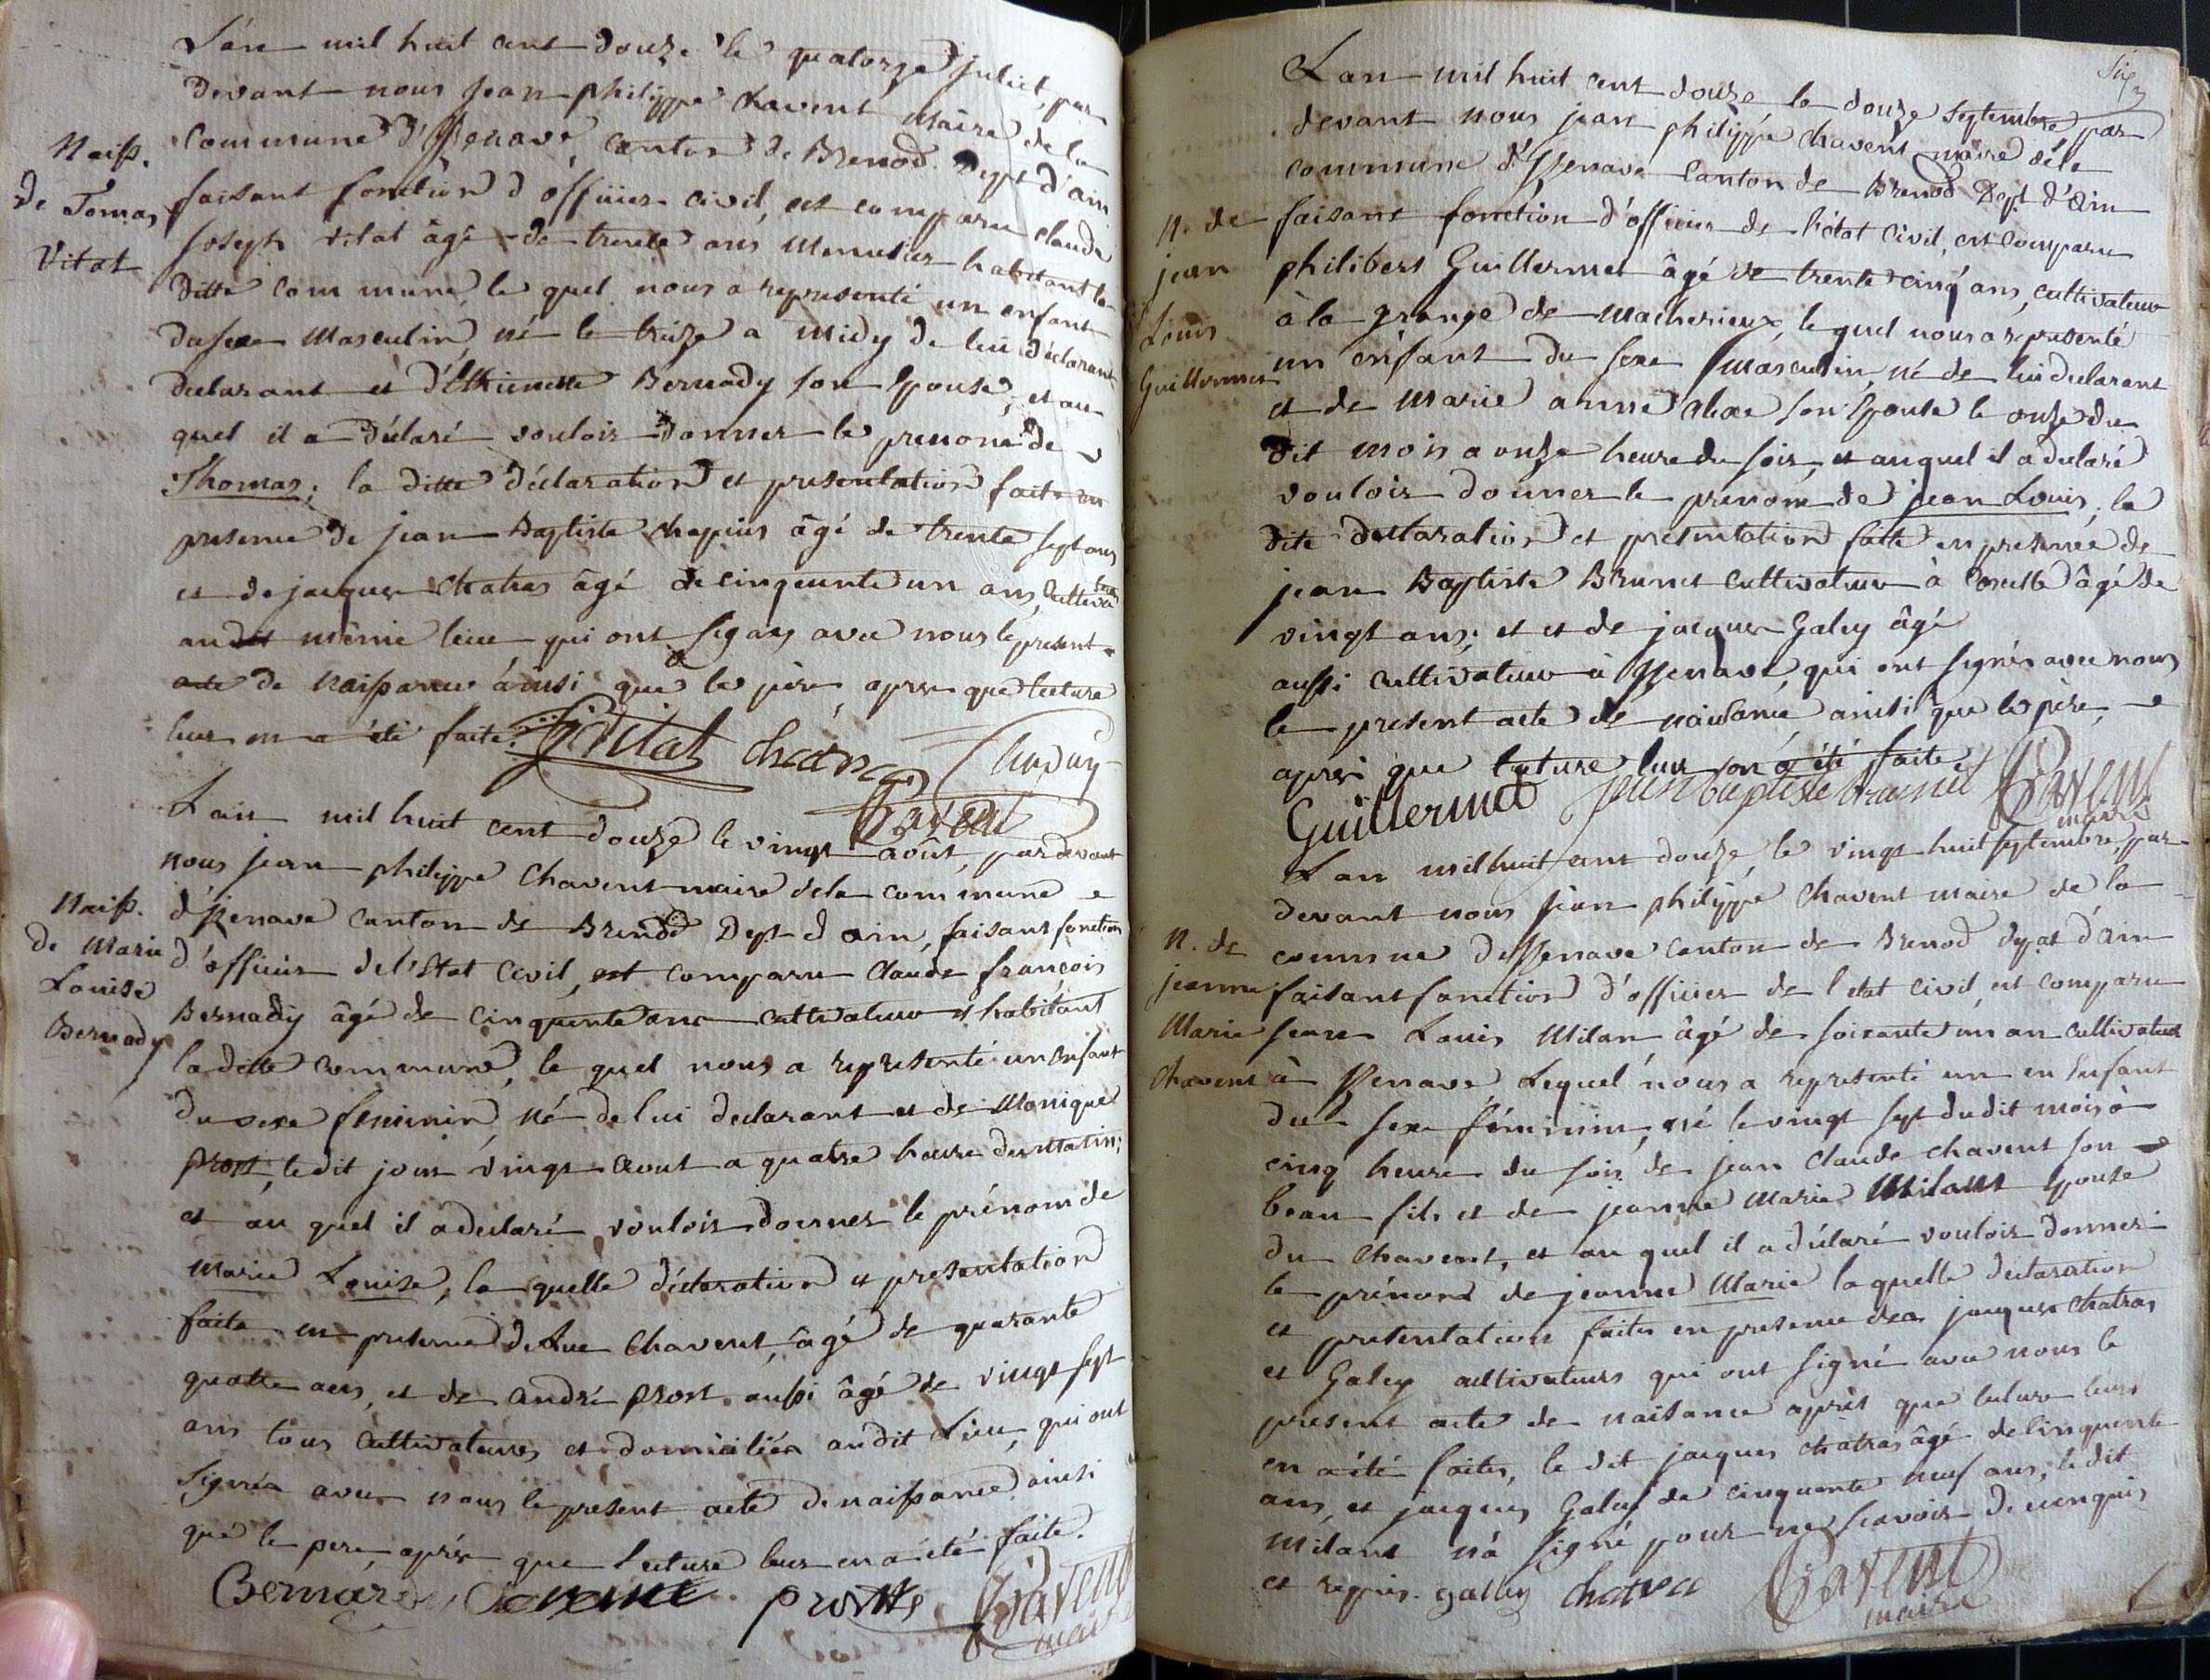 L'an mil huit cent douze le quatorze juliet, par
devant nous jean philippe chavent maire de la
commune d'Izenave, canton de Brenod. Dept d'ain
Naiss.
de Tomas
Vitat
faisant fonction d'officier civil, est comparu claude
joseph vitat âgé de trente ans menusier habitant la
ditte commune, le quel nous a representé un enfant
du sexe masculin, né le treize a midy de lui déclarant
declarant et d'Etiennette Bernady son Epouse, et au
quel il a déclaré vouloir donner le prenom de
Thomas; la ditte déclaration et presentation faite en
presence de jean Baptiste chapuis âgé de trente sept ans
et de jacques chatras âgé de cinquante un ans, cultivateurs
audit même lieu qui ont signés avec nous le present
acte de naissance ainsi que le père, apres que lecture
leur en a été faite. Vitat chatras Chapuy
Chavent
L'an mil huit cent douze le vingt août, par devant
nous jean philippe chavent maire de la commune
Naiss.
de Marie
Louise
Bernady
d'Izenave canton de Brenod Dept d'ain, faisant fonction
d'officier de l'Etat civil, est comparu Claude françois
Bernady âgé de cinquante ans cultivateur et habitant
la ditte commune, le quel nous a representé un enfant
du sexe feminin, né de lui declarant et de Monique
prost, le dit jour vingt aout a quatre heure du matin;
et au quel il a declaré vouloir donner le prénom de
Marie Louise, la quelle déclaration et presentation
faite en presence de Luc Chavent, âgé de quarante
quatre ans, et de andré prost aussi âgé de vingt sept
ans tous cultivateurs et domiciliés audit Lieu, qui ont
Signés avec nous le present acte de naissance, ainsi
que le pere, après que Lecture leur en a été faite.
Bernardy Chavent prost Chavent
maire
Six
L'an mil huit cent douze le douze septembre par
devant nous jean philippe chavent maire de la
commune d'Izenave canton de Brenod Dept d'Ain
N. de
jean
Louis
Guillermet
faisant fonction d'officier de l'état civil, est comparu
philibert Guillermet âgé de trente cinq ans, cultivateur
à la grange de Macherieux, le quel nous a representé
un enfant du sexe masculin, né de lui declarant
et de Marie anne son Epouse le onze du
dit mois a onze heure du soir, et auquel il a declaré
vouloir donner le prenom de jean Louis, la
dite declaration et presentation faite en presence de
jean Baptiste Brunet cultivateur à Corcelle âgé de
vingt ans; et et de jacques Galey âgé
aussi cultivateur à Izenave, qui ont signés avec nous
le present acte de naissance, ainsi que le père,
après que lecture leur en a été faite.
Guillermet jean baptiste brunet Chavent
maire
L'an mil huit cent douze, le vingt huit septembre, par
devant nous jean philippe chavent maire de la
N. de
jeanne
Marie
chavent
commune d'Izenave canton de Brenod depat d'ain
faisant fonction d'officier de l'etat civil, est comparu
jean Louis Milan âgé de soixante un an cultivateur
à Izenave Lequel nous a representé un en Enfant
du sexe féminin, né le vingt sept dudit mois à
cinq heure du soir de jean Claude chavent son
beau fils et de jeanne marie Milant Epouse
du chavent, et au quel il a déclaré vouloir donner
le prénom de jeanne Marie laquelle declaration
et presentation faites en presence des jacques chatras
et Galey cultivateurs qui ont signé avec nous le
present acte de naissance après que lecture leur
en a été faites, le dit jacques chatras âgé de cinquante
ans, et jacques Galey de cinquante neuf ans, le dit
Milant n'a signé pour ne scavoir de cenquis
et requis. galley chatras Chavent
maire